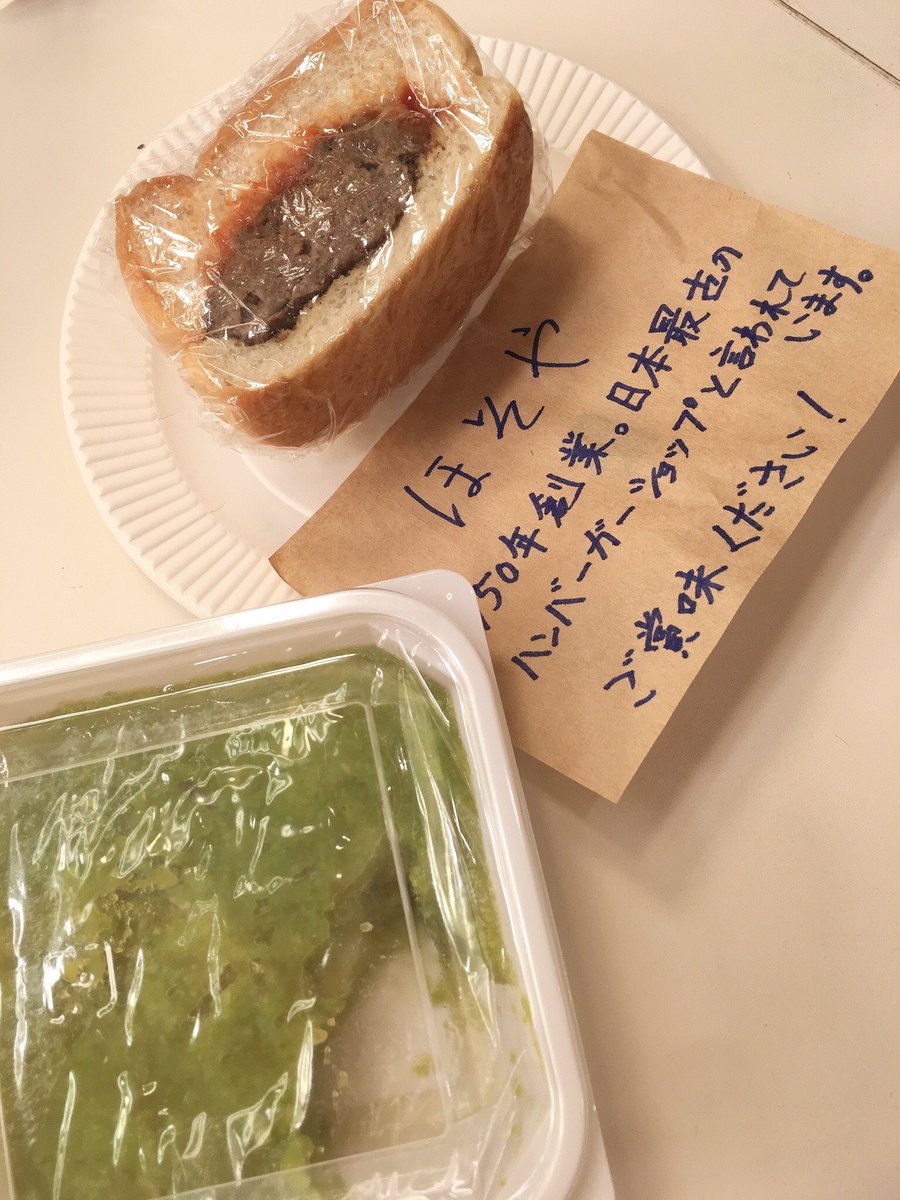 ほそや
50年創業。日本最古の
ハンバーガーショップと言われて
います。
ご賞味ください!